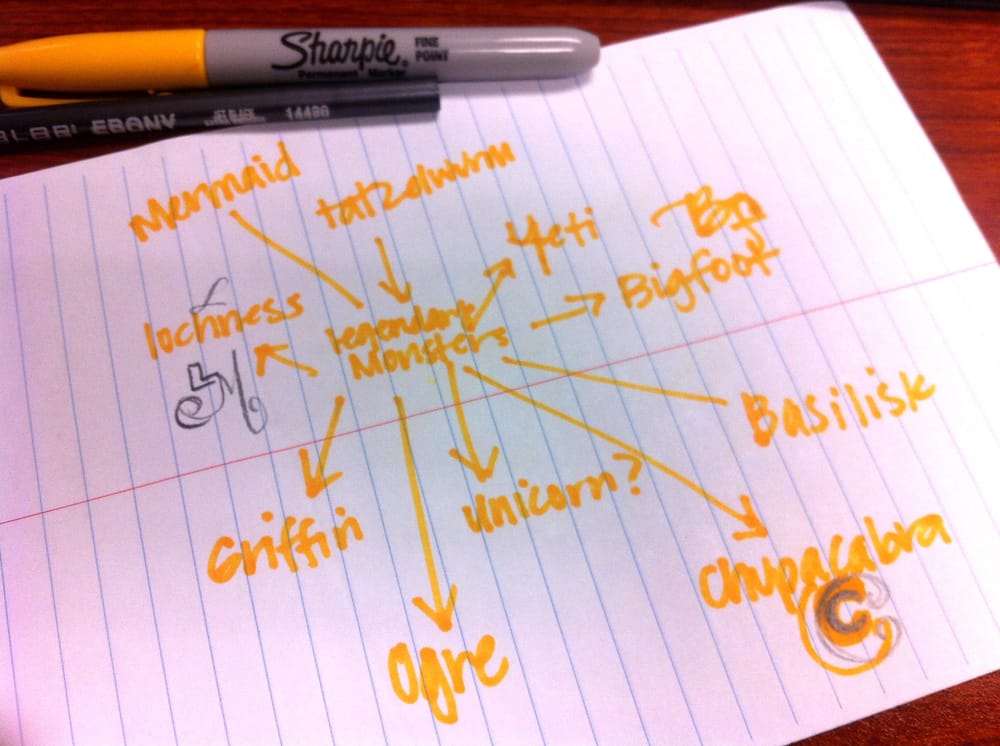 Sharpie
FINE
POINT
Permanent Marker
EBONY JET BLACK 14420
Mermaid
tatzolwurm
Yeti
Bigfoot
lochness
legendary
Monsters
Basilisk
Griffin
Unicorn?
Chupacabra
C
Ogre